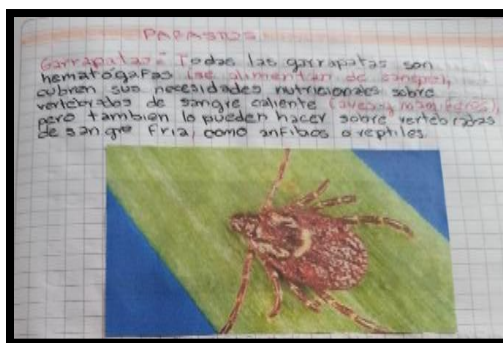 PARASITOS
Garrapatas = Todas las garrapatas son
hematogafas (se alimentan de sangre),
cubren sus necesidades nutricionales sobre
vertebrados de sangre caliente (aves y mamiferos),
pero tambien lo pueden hacer sobre vertebrados
de sangre fria, como anfibios o reptiles